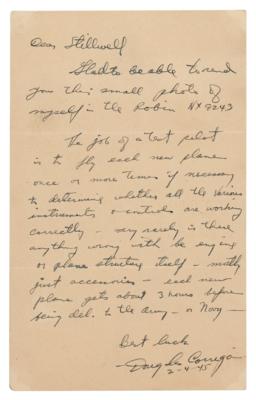 Dear Stillwell
Glad to be able to send
you this small photo of
myself in the Robin NX 9243
The job of a test pilot
is to fly each new plane
once or more times if necessary
to determine whether all the various
instruments or controls are working
correctly - very rarely is there
anything wrong with the engine
or plane structure itself - mostly
just accessories - each new
plane gets about 3 hours before
being del. to the army - or Navy -
Best luck
- Douglas Corrigan
2-4-45